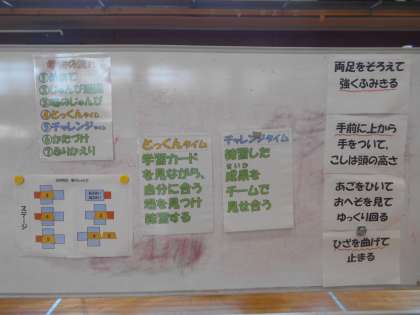 ①めあて
②じゅんび運動
③場のじゅんび
④とっくんタイム
⑤チャレンジタイム
⑥かたづけ
⑦ふりかえり
ステージ
とっくんタイム
学習カード
を見ながら、
自分に合う
場を見つけ
練習する
チャレンジタイム
練習した
成果を
チームで
見せ合う
両足をそろえて
強くふみきる
手前に上から
手をついて、
こしは頭の高さ
あごをひいて
おへそを見て
ゆっくり回る
ひざを曲げて
止まる